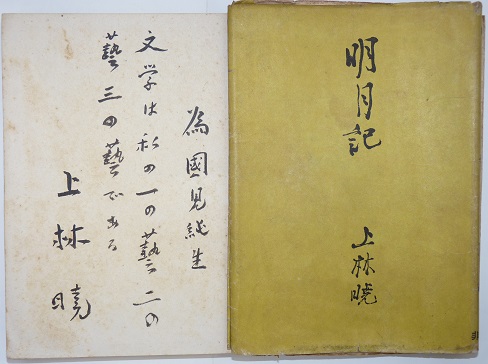 明月記
上林暁
為國見純生
文学は私の一の藝二の
藝三の藝である
上林暁